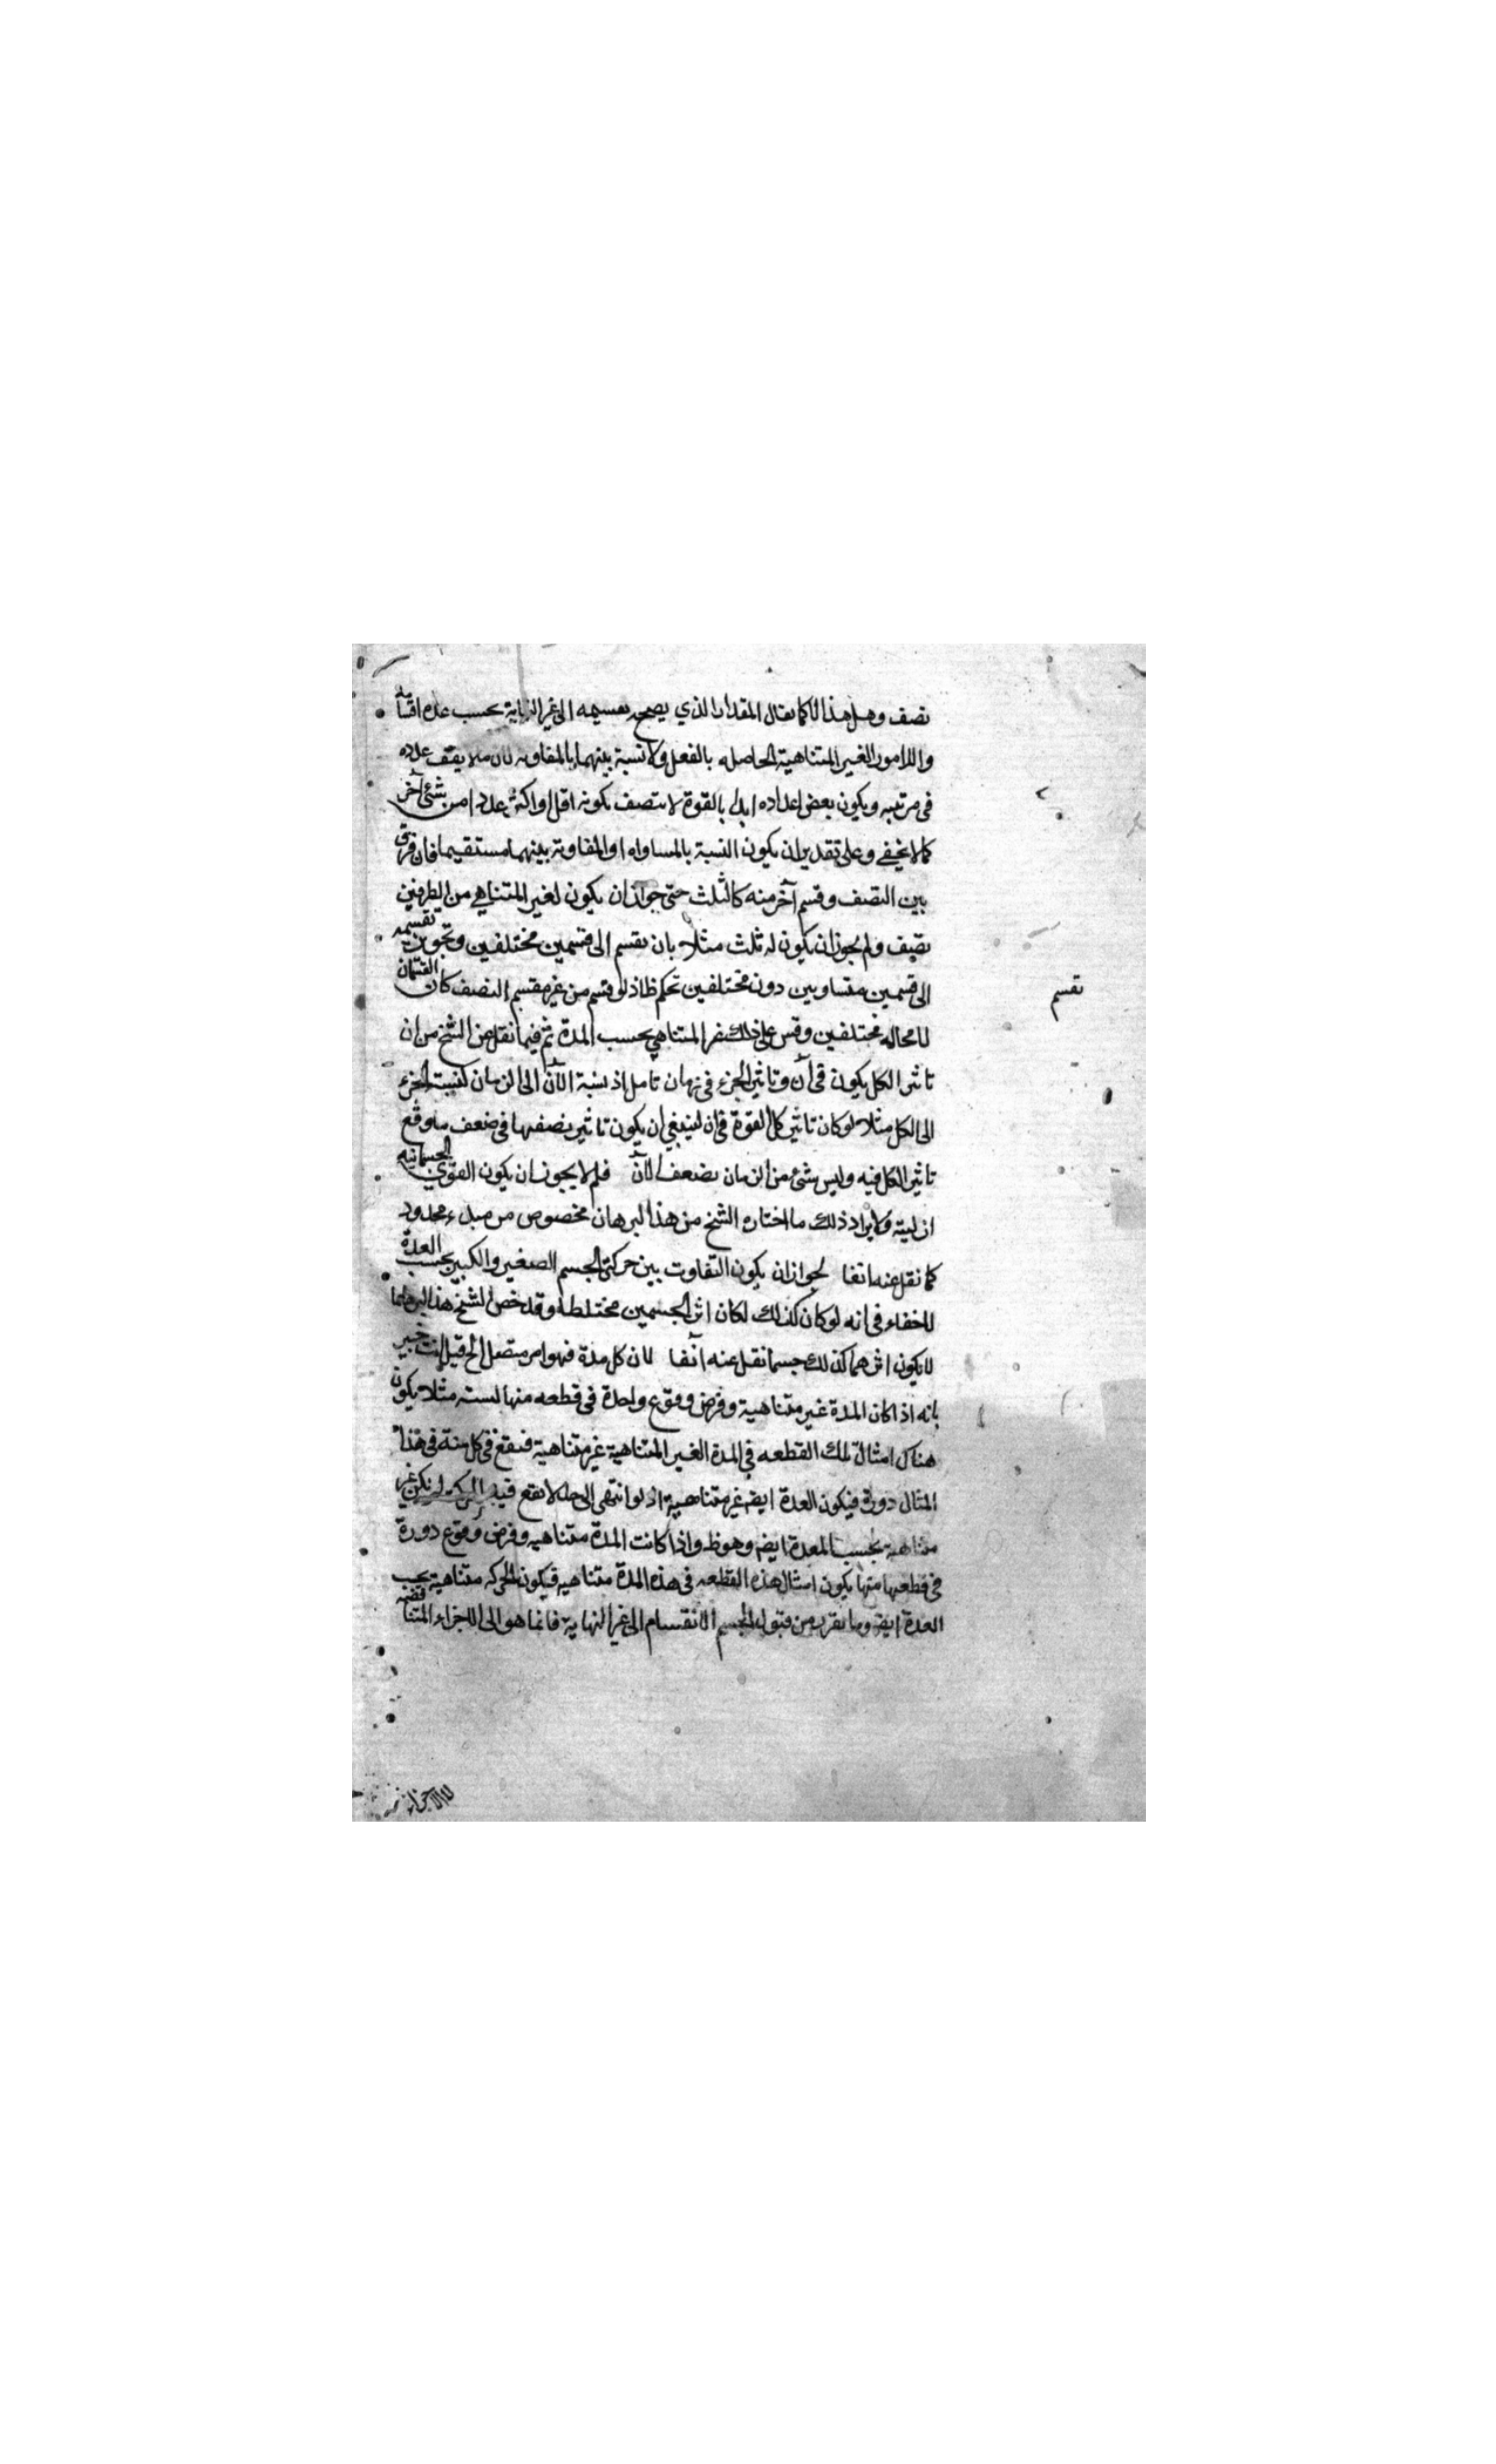 نصف وهل هذا الا كما يقال المقدار الذي يصح تقسيمه الى غير النهاية بحسب عدد اقسامه
والامور الغير المتناهية الحاصله بالفعل ولا نسبة بينهما بالمفاوته لان ما لا يقف عدده
في مرتبه ويكون بعض اعداده ابدا بالقوة لا يتصف بكونه اقل او اكثر عددا من شئ آخر
كما لا يخفى وعلى تقدير ان يكون النسبة بالمساواه او المفاوته بينهما مستقيما فاى فرق
بين النصف وقسم آخر منه كالثلث حتى جواز ان يكون لغير المتناهي من الطرفين
نصف ولم يجوز ان يكون له ثلث مثلا بان يقسم الى قسمين مختلفين وتجويز تقسيمه
الى قسمين متساويين دون مختلفين تحكم ظ اذ لو قسم من غير مقسم النصف كان القسمان
تقسم
لا محاله مختلفين وقس على ذلك غير المتناهي بحسب المدة ثم فيما نقل عن الشيخ من ان
تاثير الكل يكون في آن وتاثير الجزء في زمان تامل اذ نسبة الآن الى الزمان كنسبت الجزء
الى الكل مثلا لو كان تاثير كل القوة في ان لينبغي ان يكون تاثير نصفها في ضعف ما وقع
تاثير الكل فيه وليس شئ من الزمان بضعف الآن فلم لا يجوز ان يكون القوى الجسمانيه
ازلية ولايراد ذلك ما اختاره الشيخ من هذا البرهان مخصوص من مبدء محدود
كما نقل عنه انفا لجواز ان يكون التفاوت بين حركتى الجسم الصغير والكبير بحسب العدة
لا خفاء في انه لو كان كذلك لكان اثر الجسمين مختلطا وقد خص الشيخ هذا البرهان بما
لا يكون اثرهما كذلك حسبما نقل عنه آنفا لان كل مدة فهو امر متصل الخ قيل انت خبير
بانه اذا كان المدة غير متناهية وفرض وقوع واحدة في قطعه منها لسنه مثلا يكون
هناك امثال تلك القطعه في المدة الغير المتناهية غير متناهية فيقع في كل سنة في هذا
المثال دورة فيكون العدة ايضا غير متناهية اذ لو انتهى الى حد لا يقع فيه الحركه لم تكن غير
متناهية بحسب المدة ايضا وهو ظ واذا كانت المدة متناهيه وفرض وقوع دورة
في قطعها منها يكون امثال هذه القطعه في هذه المدة متناهيه فيكون الحركه متناهية بحسب
العدة ايضا وما تقرر من قبول الجسم الانقسام الى غير النهاية فانما هو الى الاجزاء المتناقصه